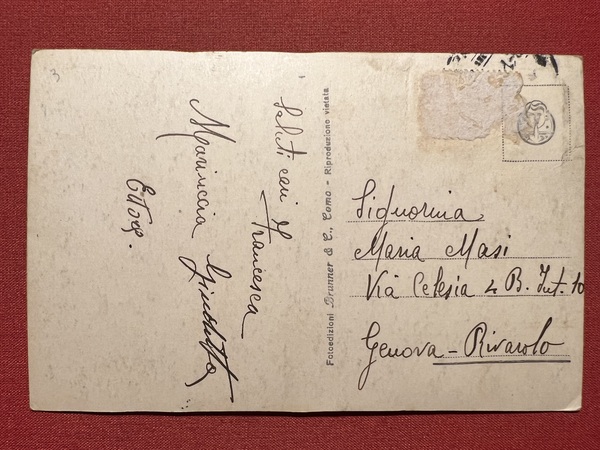 3
Saluti cari
Francesca
Mariuccia Giuseppe
Ettore.
Fotoedizioni Brunner & C., Como - Riproduzione vietata
Signorina
Maria Masi
Via Celesia 4 B. Int. 10
Genova - Rivarolo